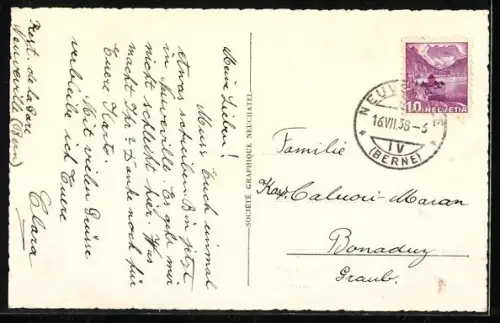 Meine Lieben!
Muss Euch einmal
etwas schreiben. Bin jetzt
in Neuveville. Es geht mir
nicht schlecht hier. Was
macht Ihr? Danke noch für
Euere Karte.
Mit vielen Grüssen
verbleibe ich Euere
Clara
Rest. de la Gare
Neuveville (Bern)
SOCIÉTÉ GRAPHIQUE NEUCHATEL
10 HELVETIA
NEUVEVILLE
16.VII.38-3
IV
(BERNE)
Familie
Calnori-Maran
Bonaduz
Graub.